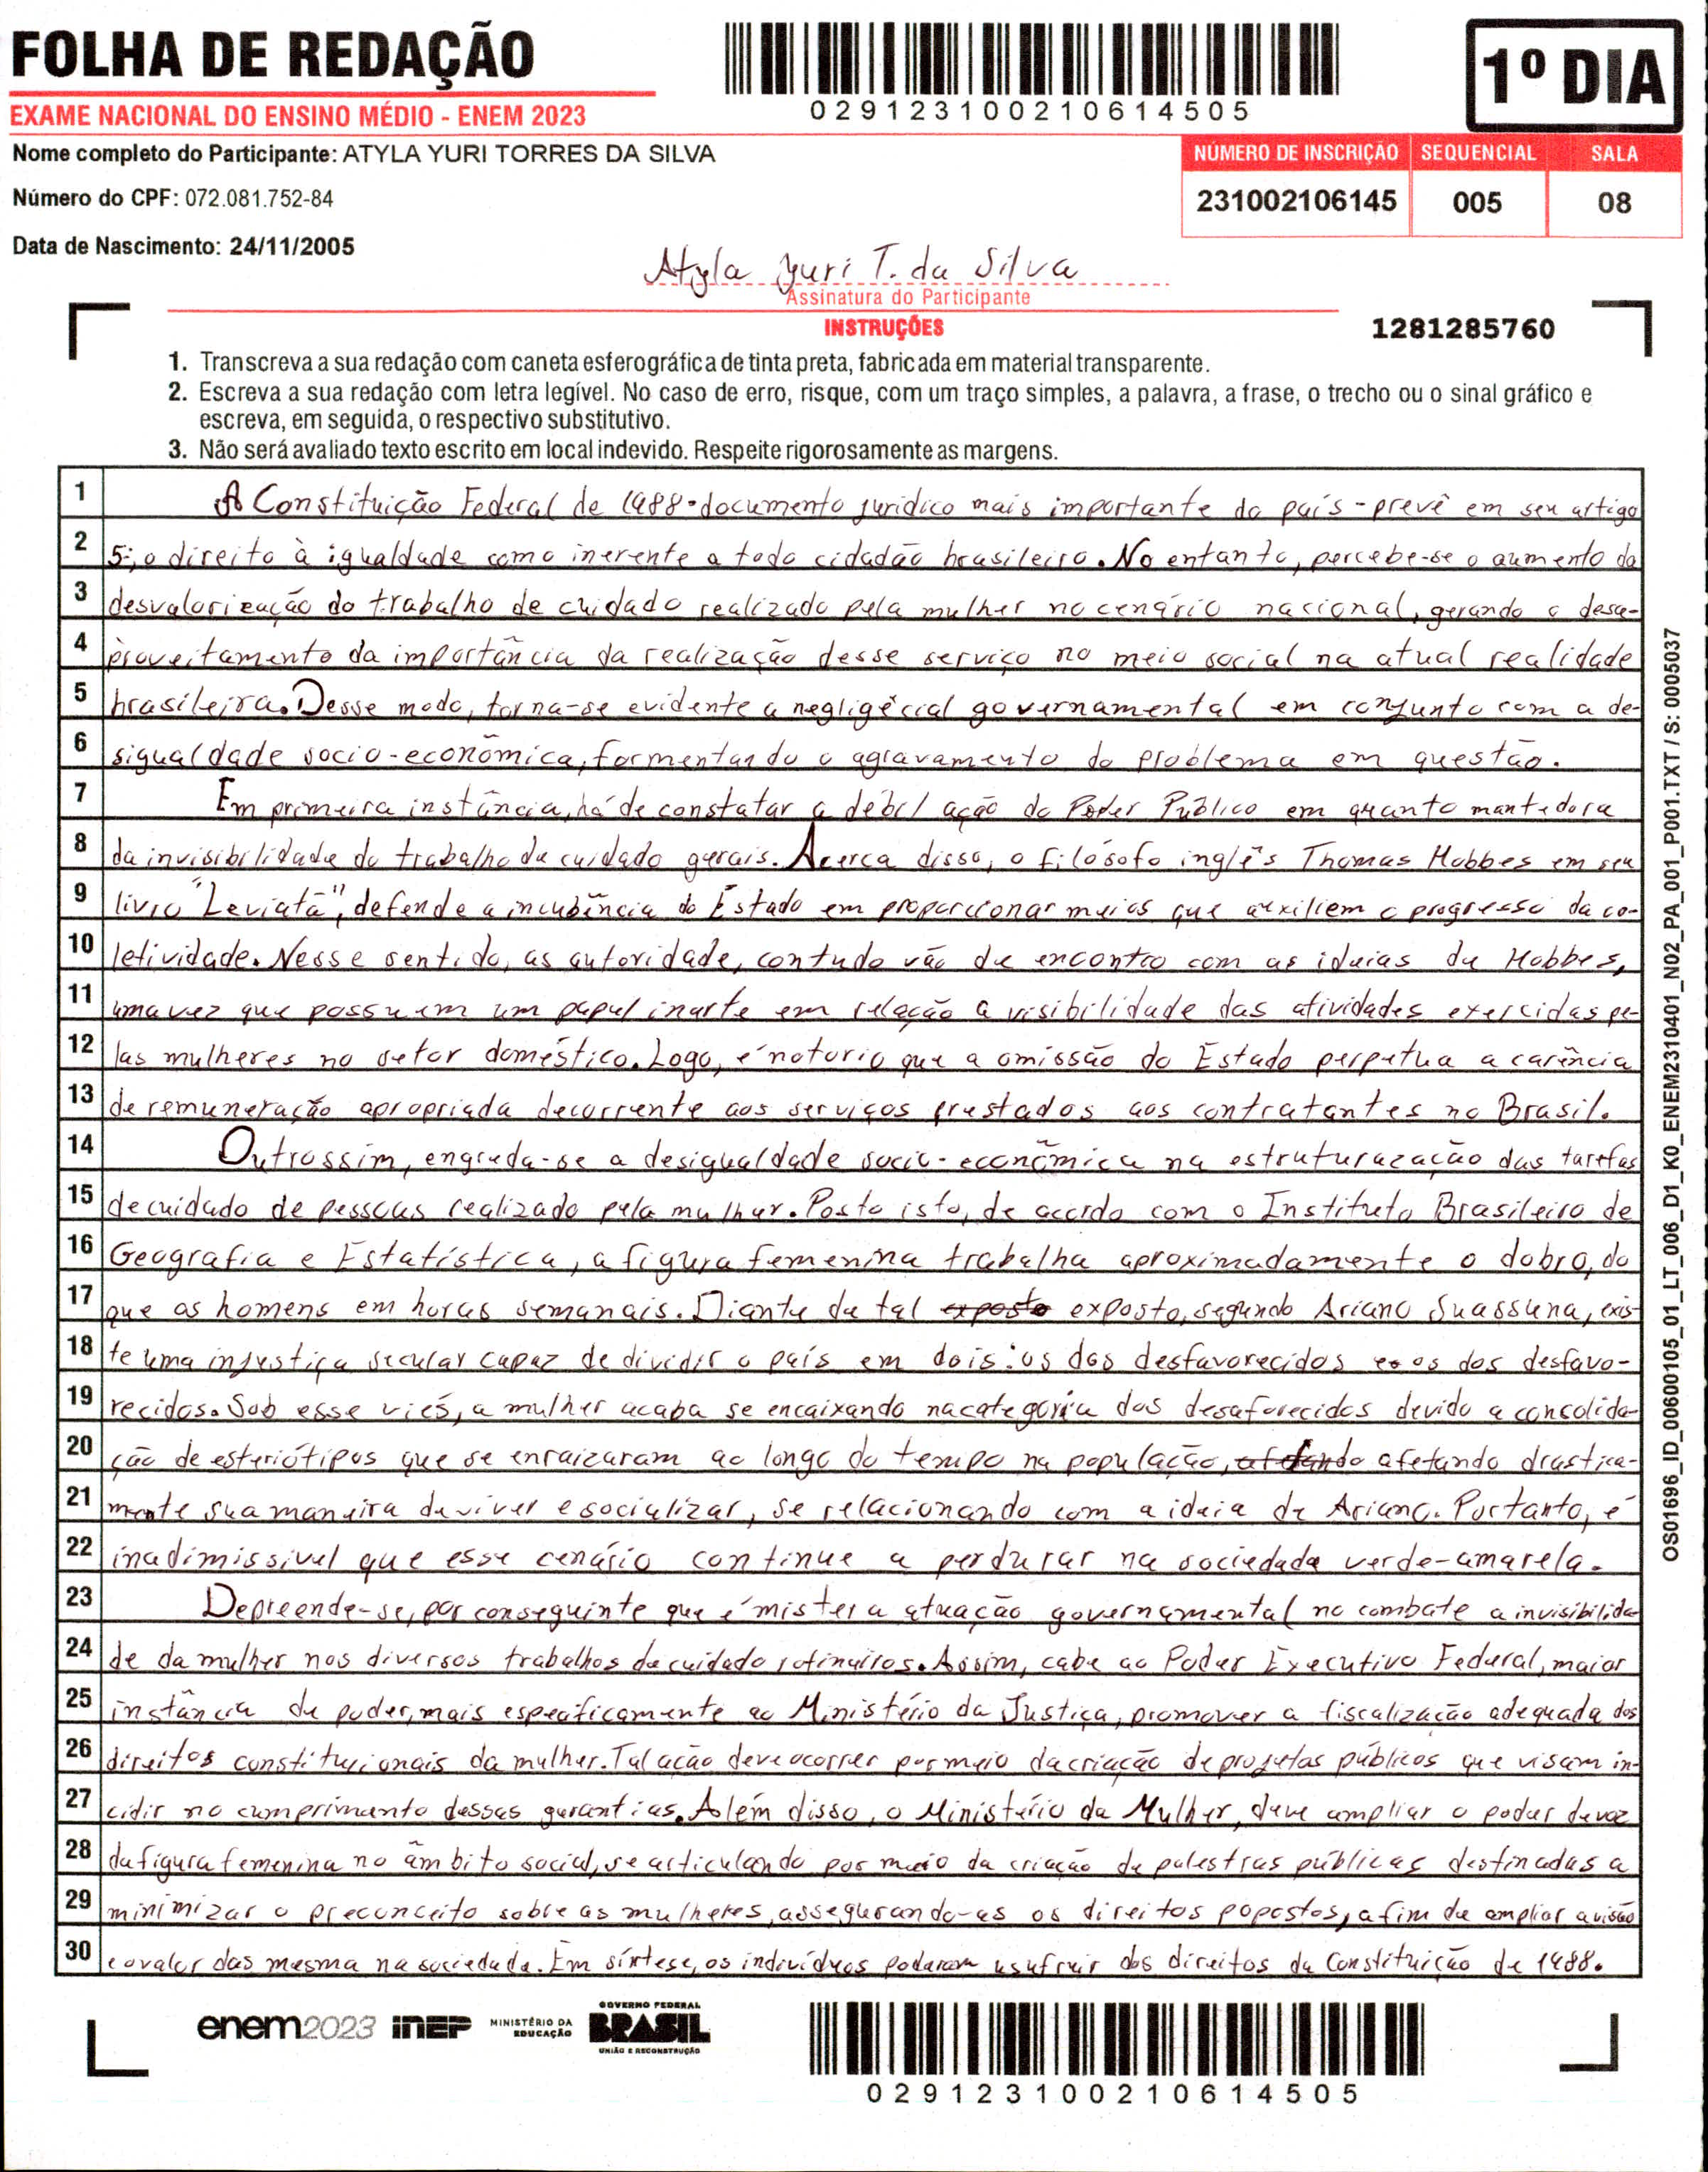 FOLHA DE REDAÇÃO
EXAME NACIONAL DO ENSINO MÉDIO - ENEM 2023
029123100210614505
1º DIA
Nome completo do Participante: ATYLA YURI TORRES DA SILVA
Número do CPF: 072.081.752-84
Data de Nascimento: 24/11/2005
NÚMERO DE INSCRIÇÃO SEQUENCIAL SALA
231002106145 005 08
Atyla Yuri T. da Silva
Assinatura do Participante
INSTRUÇÕES
1281285760
1. Transcreva a sua redação com caneta esferográfica de tinta preta, fabricada em material transparente.
2. Escreva a sua redação com letra legível. No caso de erro, risque, com um traço simples, a palavra, a frase, o trecho ou o sinal gráfico e
escreva, em seguida, o respectivo substitutivo.
3. Não será avaliado texto escrito em local indevido. Respeite rigorosamente as margens.
1 A Constituição Federal de 1988-documento jurídico mais importante do país - prevê em seu artigo
2 5º, o direito à igualdade como inerente a todo cidadão brasileiro. No entanto, percebe-se o aumento da
3 desvalorização do trabalho de cuidado realizado pela mulher no cenário nacional, gerando o desa-
4 proveitamento da importância da realização desse serviço no meio social na atual realidade
5 brasileira. Desse modo, torna-se evidente a negligêcial governamental em conjunto com a de-
6 sigualdade socio-econômica, formentando o agravamento do problema em questão.
7 Em primeira instância, há de constatar a débil ação do Poder Público em quanto mantedora
8 da invisibilidade do trabalho de cuidado gerais. Acerca disso, o filósofo inglês Thomas Hobbes em seu
9 livro "Leviatã", defende a incubência do Estado em proporcionar meios que auxiliem o progresso da co-
10 letividade. Nesse sentido, as autoridade, contudo vão de encontro com as ideias de Hobbes,
11 uma vez que possuem um papel inerte em relação a visibilidade das atividades exercidas pe-
12 las mulheres no setor doméstico. Logo, é notorio que a omissão do Estado perpetua a carência
13 de remuneração apropriada decorrente aos serviços prestados aos contratantes no Brasil.
14 Outrossim, engreda-se a desigualdade socio-econômica na estruturazação das tarefas
15 de cuidado de pessoas realizado pela mulher. Posto isto, de acordo com o Instituto Brasileiro de
16 Geografia e Estatística, a figura femenina trabalha aproximadamente o dobro, do
17 que os homens em horas semanais. Diante de tal exposto exposto, segundo Ariano Suassuna, exis-
18 te uma injustiça secular capaz de dividir o país em dois: os dos desfavorecidos e os dos desfavo-
19 recidos. Sob esse viés, a mulher acaba se encaixando na categoria dos desaforecidos devido a consolida-
20 ção de esteriótipos que se enraizaram ao longo do tempo na população, afetando afetando drastica-
21 mente sua maneira de viver e socializar, se relacionando com a ideia de Ariano. Portanto, é
22 inadimissivel que esse cenário continue a perdurar na sociedade verde-amarela.
23 Depreende-se, por conseguinte que é mister a atuação governamental no combate a invisibilida-
24 de da mulher nos diversos trabalhos de cuidado rotineiros. Assim, cabe ao Poder Executivo Federal, maior
25 instância de poder, mais especificamente ao Ministério da Justiça, promover a fiscalização adequada dos
26 direitos constitucionais da mulher. Tal ação deve ocorrer por meio da criação de projetos públicos que visam in-
27 cidir no cumprimento dessas garantias. Além disso, o Ministério da Mulher, deve ampliar o poder de voz
28 da figura femenina no âmbito social, se articulando por meio da criação de palestras públicas destinadas a
29 minimizar o preconceito sobre as mulheres, assegurando-as os direitos popostos, a fim de ampliar a visão
30 e o valor das mesma na sociedade. Em síntese, os indivíduos poderam usufruir dos direitos da Constituição de 1988.
OS01696_ID_00600105_01_LT_006_D1_K0_ENEM2310401_N02_PA_001_P001.TXT / S: 0005037
enem2023 INEP MINISTÉRIO DA EDUCAÇÃO GOVERNO FEDERAL BRASIL UNIÃO E RECONSTRUÇÃO
029123100210614505